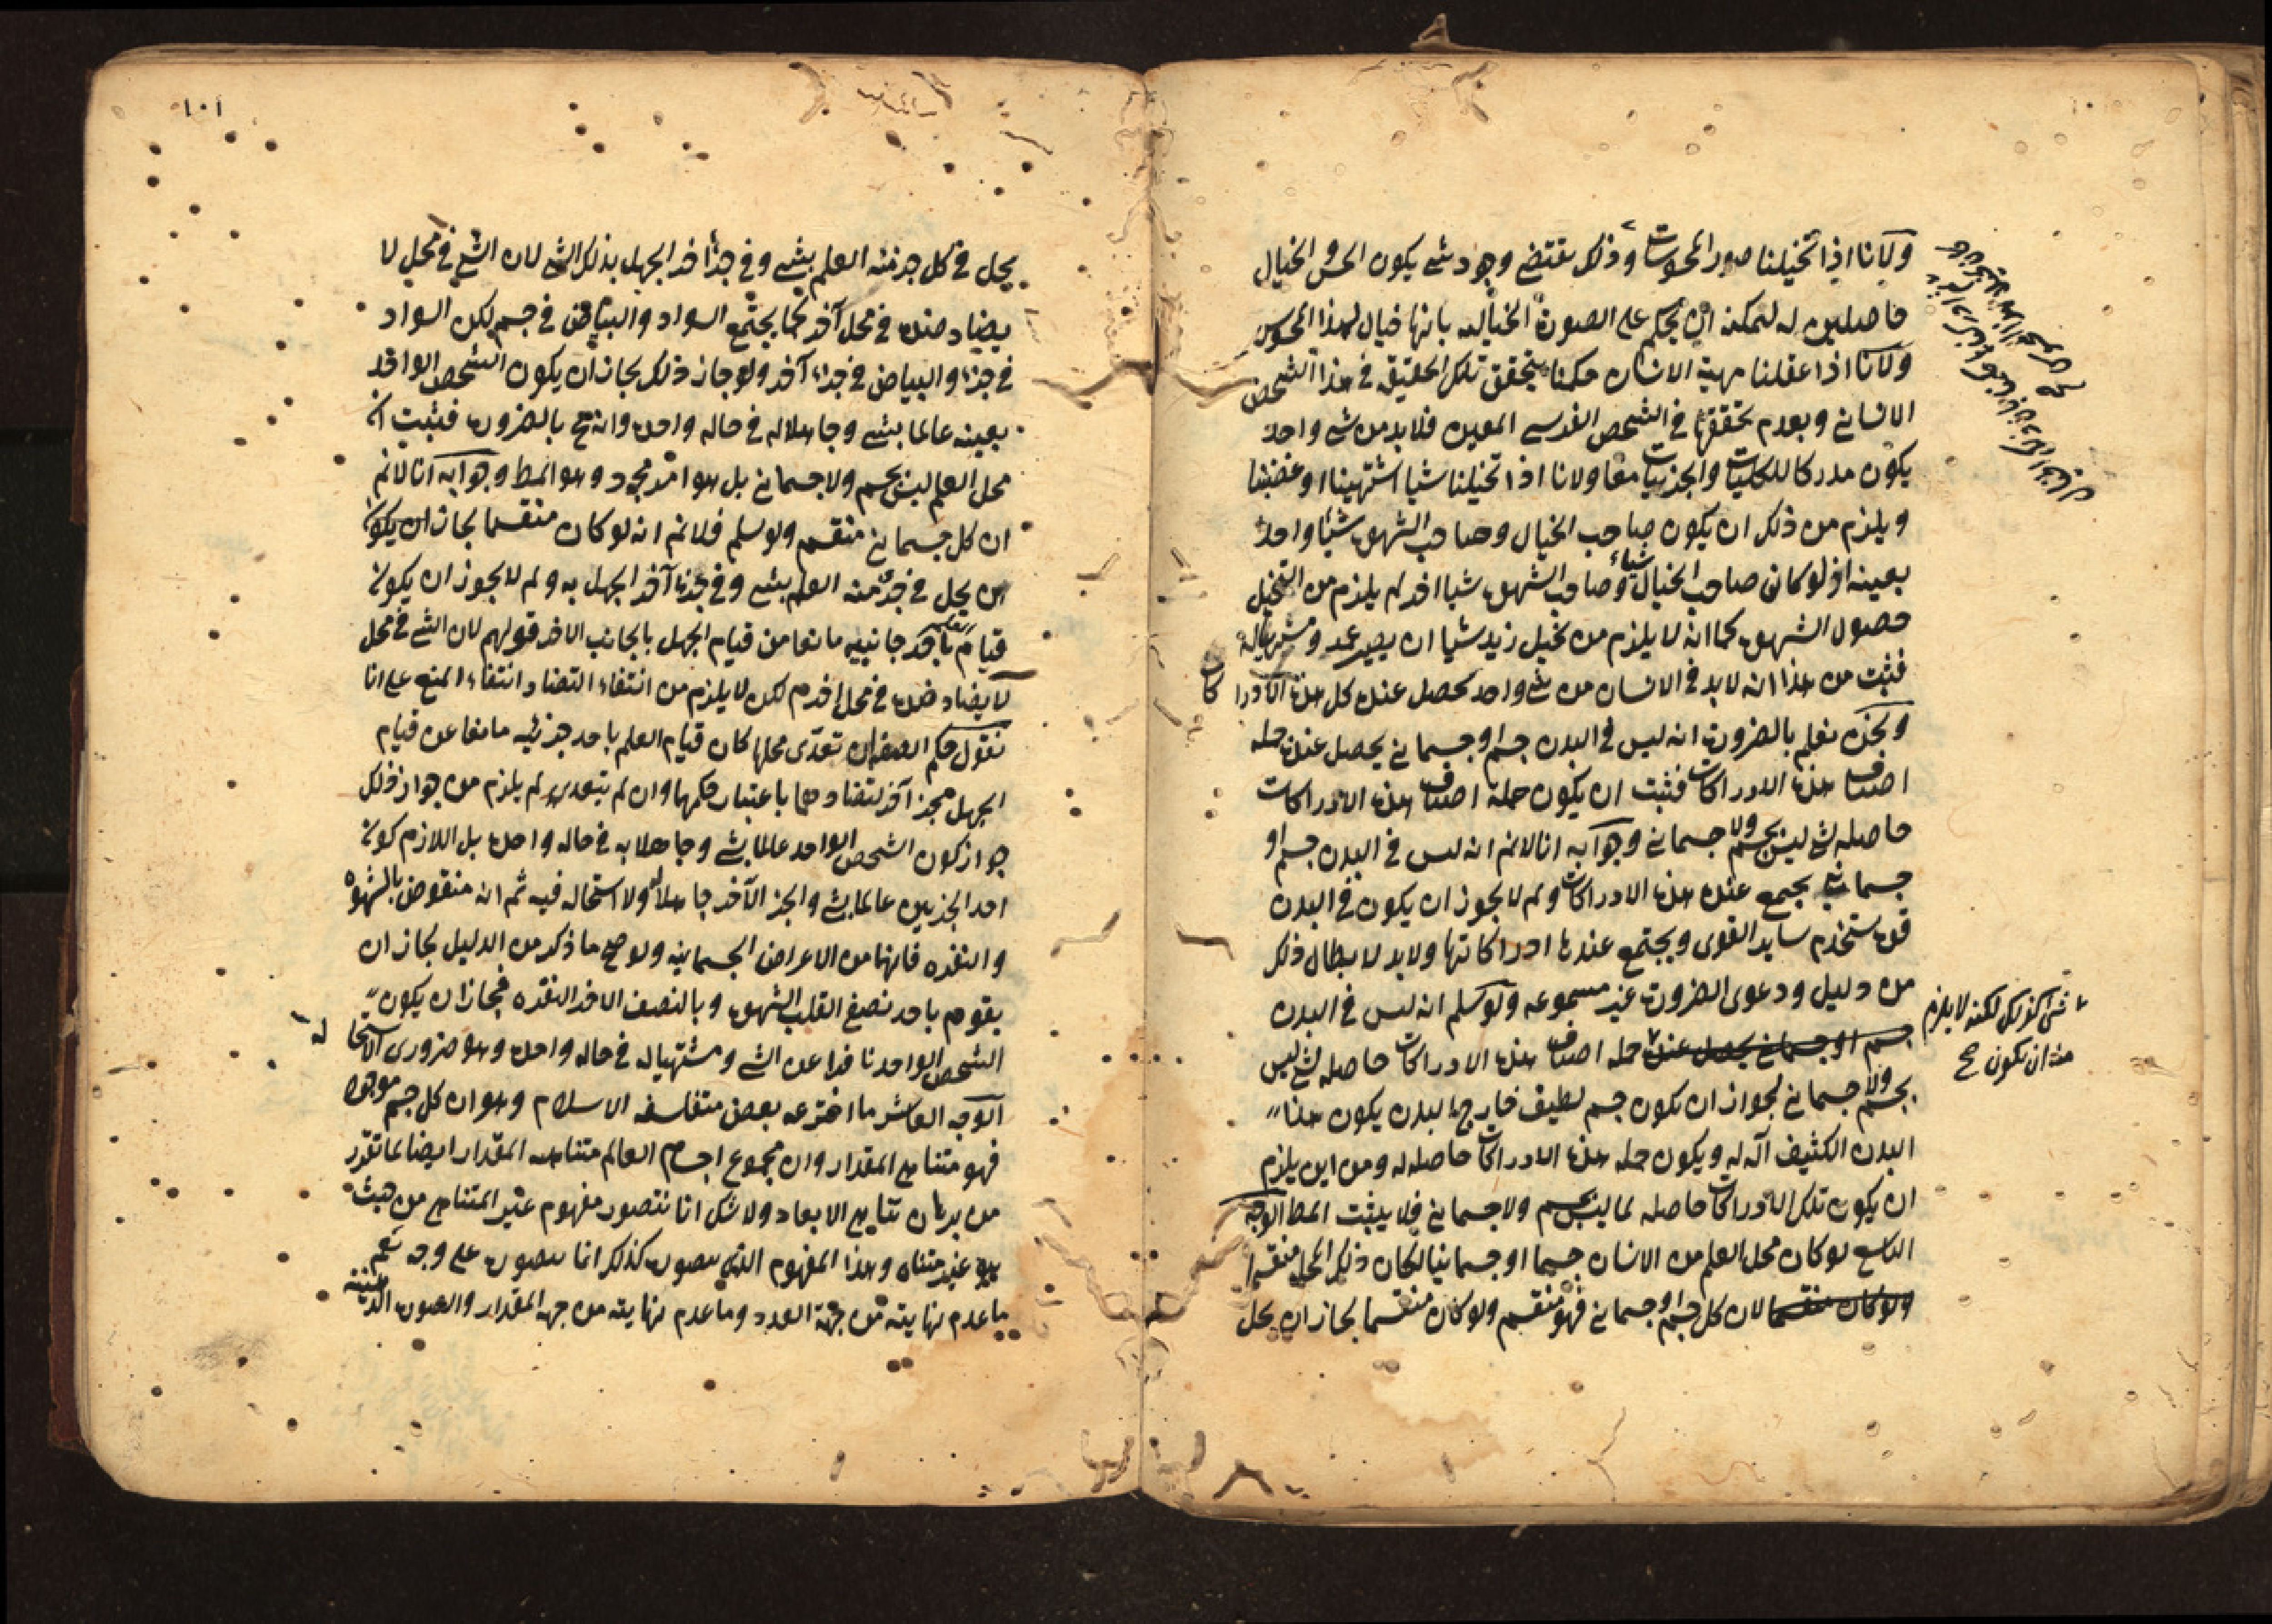 ولانا اذا تخيلنا صور المحسوسات وذلك يقتضى وجود شى يكون الحس والخيال
حاصلين له ليمكنه ان يحكم على الصورة الخياليه بانها خيال لهذا المحسوس
ولانا اذا عقلنا مهية الانسان حكمنا بتحقق تلك الحقيقه فى هذا الشخص
الانسانى وبعدم تحققها فى الشخص الفرسى المعين فلا بد من شى واحد
يكون مدركا للكليات والجزييات معا ولانا اذا تخيلنا شيا اشتهيناه او غضبنا
ويلزم من ذلك ان يكون صاحب الخيال وصاحب الشهوة شيا واحدا
بعينه اذ لو كان صاحب الخيال شياء وصاحب الشهوة شيا اخر لم يلزم من التخيل
حصول الشهوة كما انه لا يلزم من تخيل زيد شيا ان يصير عمرو مشتهيا له
فثبت من هذا انه لا بد فى الانسان من شى واحد يحصل عنده كل هذه الادراكات
ونحن نعلم بالضرورة انه ليس فى البدن جسم او جسمانى يحصل عنده جمله
اصناف هذه الادراكات فثبت ان يكون جملة اصناف هذه الادراكات
حاصله لشى ليس بجسم ولا جسمانى وجوابه انا لا نم انه ليس فى البدن جسم او
جسمانى يجتمع عنده هذه الادراكات ولم لا يجوز ان يكون فى البدن
قوة تستخدم ساير القوى ويجتمع عندها ادراكاتها ولا بد لابطال ذلك
من دليل ودعوى الضرورة غير مسموعه ولو سلم انه ليس فى البدن
جسم او جسمانى يحصل عنده جمله اصناف هذه الادراكات حاصله لشى ليس
شى كذلك لكنه لا يلزم
منه ان يكون صح
بجسم ولا جسمانى لجواز ان يكون جسم لطيف خارج البدن يكون هذا
البدن الكثيف آلة له ويكون جمله هذه الادراكات حاصله له ومن اين يلزم
ان يكون تلك الادراكات حاصله لما ليس بجسم ولا جسمانى فلا يثبت المط الوجه
التاسع لو كان محل العلم من الانسان جسما او جسمانيا لكان ذلك المحل منقسما
ولو كان منقسما لان كل جسم او جسمانى فهو منقسم ولو كان منقسما لجاز ان يحل
١٠١
يحل فى كل جز منه العلم بشى وفى جزء اخر الجهل بذلك الشى لان الشى فى محل لا
يضاد ضده فى محل آخر كما يجتمع السواد والبياض فى جسم لكن السواد
فى جزء والبياض فى جزء آخر ولو جاز ذلك لجاز ان يكون الشخص الواحد
بعينه عالما بشى وجاهلا له فى حاله واحدة وانه مح بالضرورة فثبت ان
محل العلم ليس بجسم ولا جسمانى بل هو امر مجرد وهو المط وجوابه انا لا نم
ان كل جسمانى منقسم ولو سلم فلا نم انه لو كان منقسما لجاز ان يكون
ان يحل فى جزء منه العلم بشى وفى جزء آخر الجهل به ولم لا يجوز ان يكون
قيام العلم باحد جانبيه مانعا من قيام الجهل بالجانب الاخر قولهم لان الشى فى محل
لا يضاد ضده فى محل اخر م لكن لا يلزم من انتفاء التضاد انتفاء المنع على انا
نقول حكم الصفة ان تعدى محلها كان قيام العلم باحد جزئيه مانعا عن قيام
الجهل بجز آخر لتضادهما باعتبار حكمها وان لم يتعدى لم يلزم من جواز ذلك
جواز كون الشخص الواحد عالما بشى وجاهلا به فى حاله واحدة بل اللازم كون
احد الجزيين عالما بشى والجز الآخر جاهلا له ولا استحاله فيه ثم انه منقوض بالشهوه
والنفره فانهما من الاعراض الجسمانيه ولو صح ما ذكر من الدليل لجاز ان
يقوم باحد نصفى القلب الشهوة وبالنصف الاخر النفره فجاز ان يكون
الشخص الواحد نافرا عن الشى ومشتهيا له فى حاله واحدة وهو ضرورى الاستحاله
الوجه العاشر ما اخترعه بعض متفلسفه الاسلام وهو ان كل جسم موجود
فهو متناهى المقدار وان مجموع اجسام العالم متناهيه المقدار ايضا لما تقرر
من برهان تناهى الابعاد ولا شك انا نتصور مفهوم غير المتناهى من حيث
هو غير متناه وهذا المفهوم الذى نتصوره كذلك انما نتصوره على وجه يعم
ما عدم نهايته من جهة العدد وما عدم نهايته من جهه المقدار والصورة الذهنيه